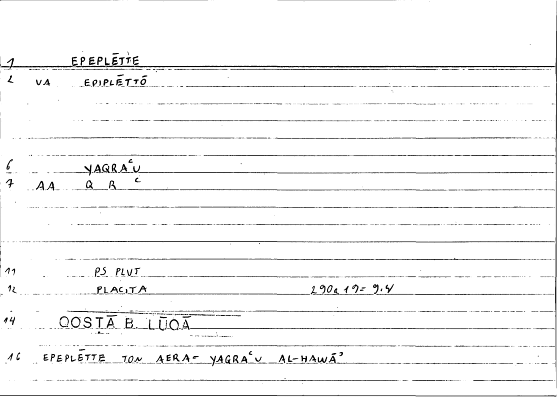 1 EPEPLĒTTE
2 VA EPIPLĒTTŌ
6 YAQRAᶜU
7 AA Q R ᶜ
11 PS. PLUT
12 PLACITA 290a19= 9.4
14 QOSṬĀ B. LŪQĀ
16 EPEPLĒTTE TON AERA= YAQRAᶜU AL-HAWĀʾ